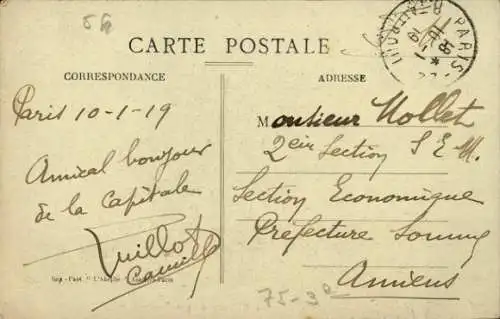 54
CARTE POSTALE
CORRESPONDANCE
ADRESSE
Paris 10-1-19
Amical bonjour
de la Capitale
Camille
Monsieur Mollet
2eir Section S E M.
Section Economique
Prefecture Somme
Amiens
75-3e
PARIS